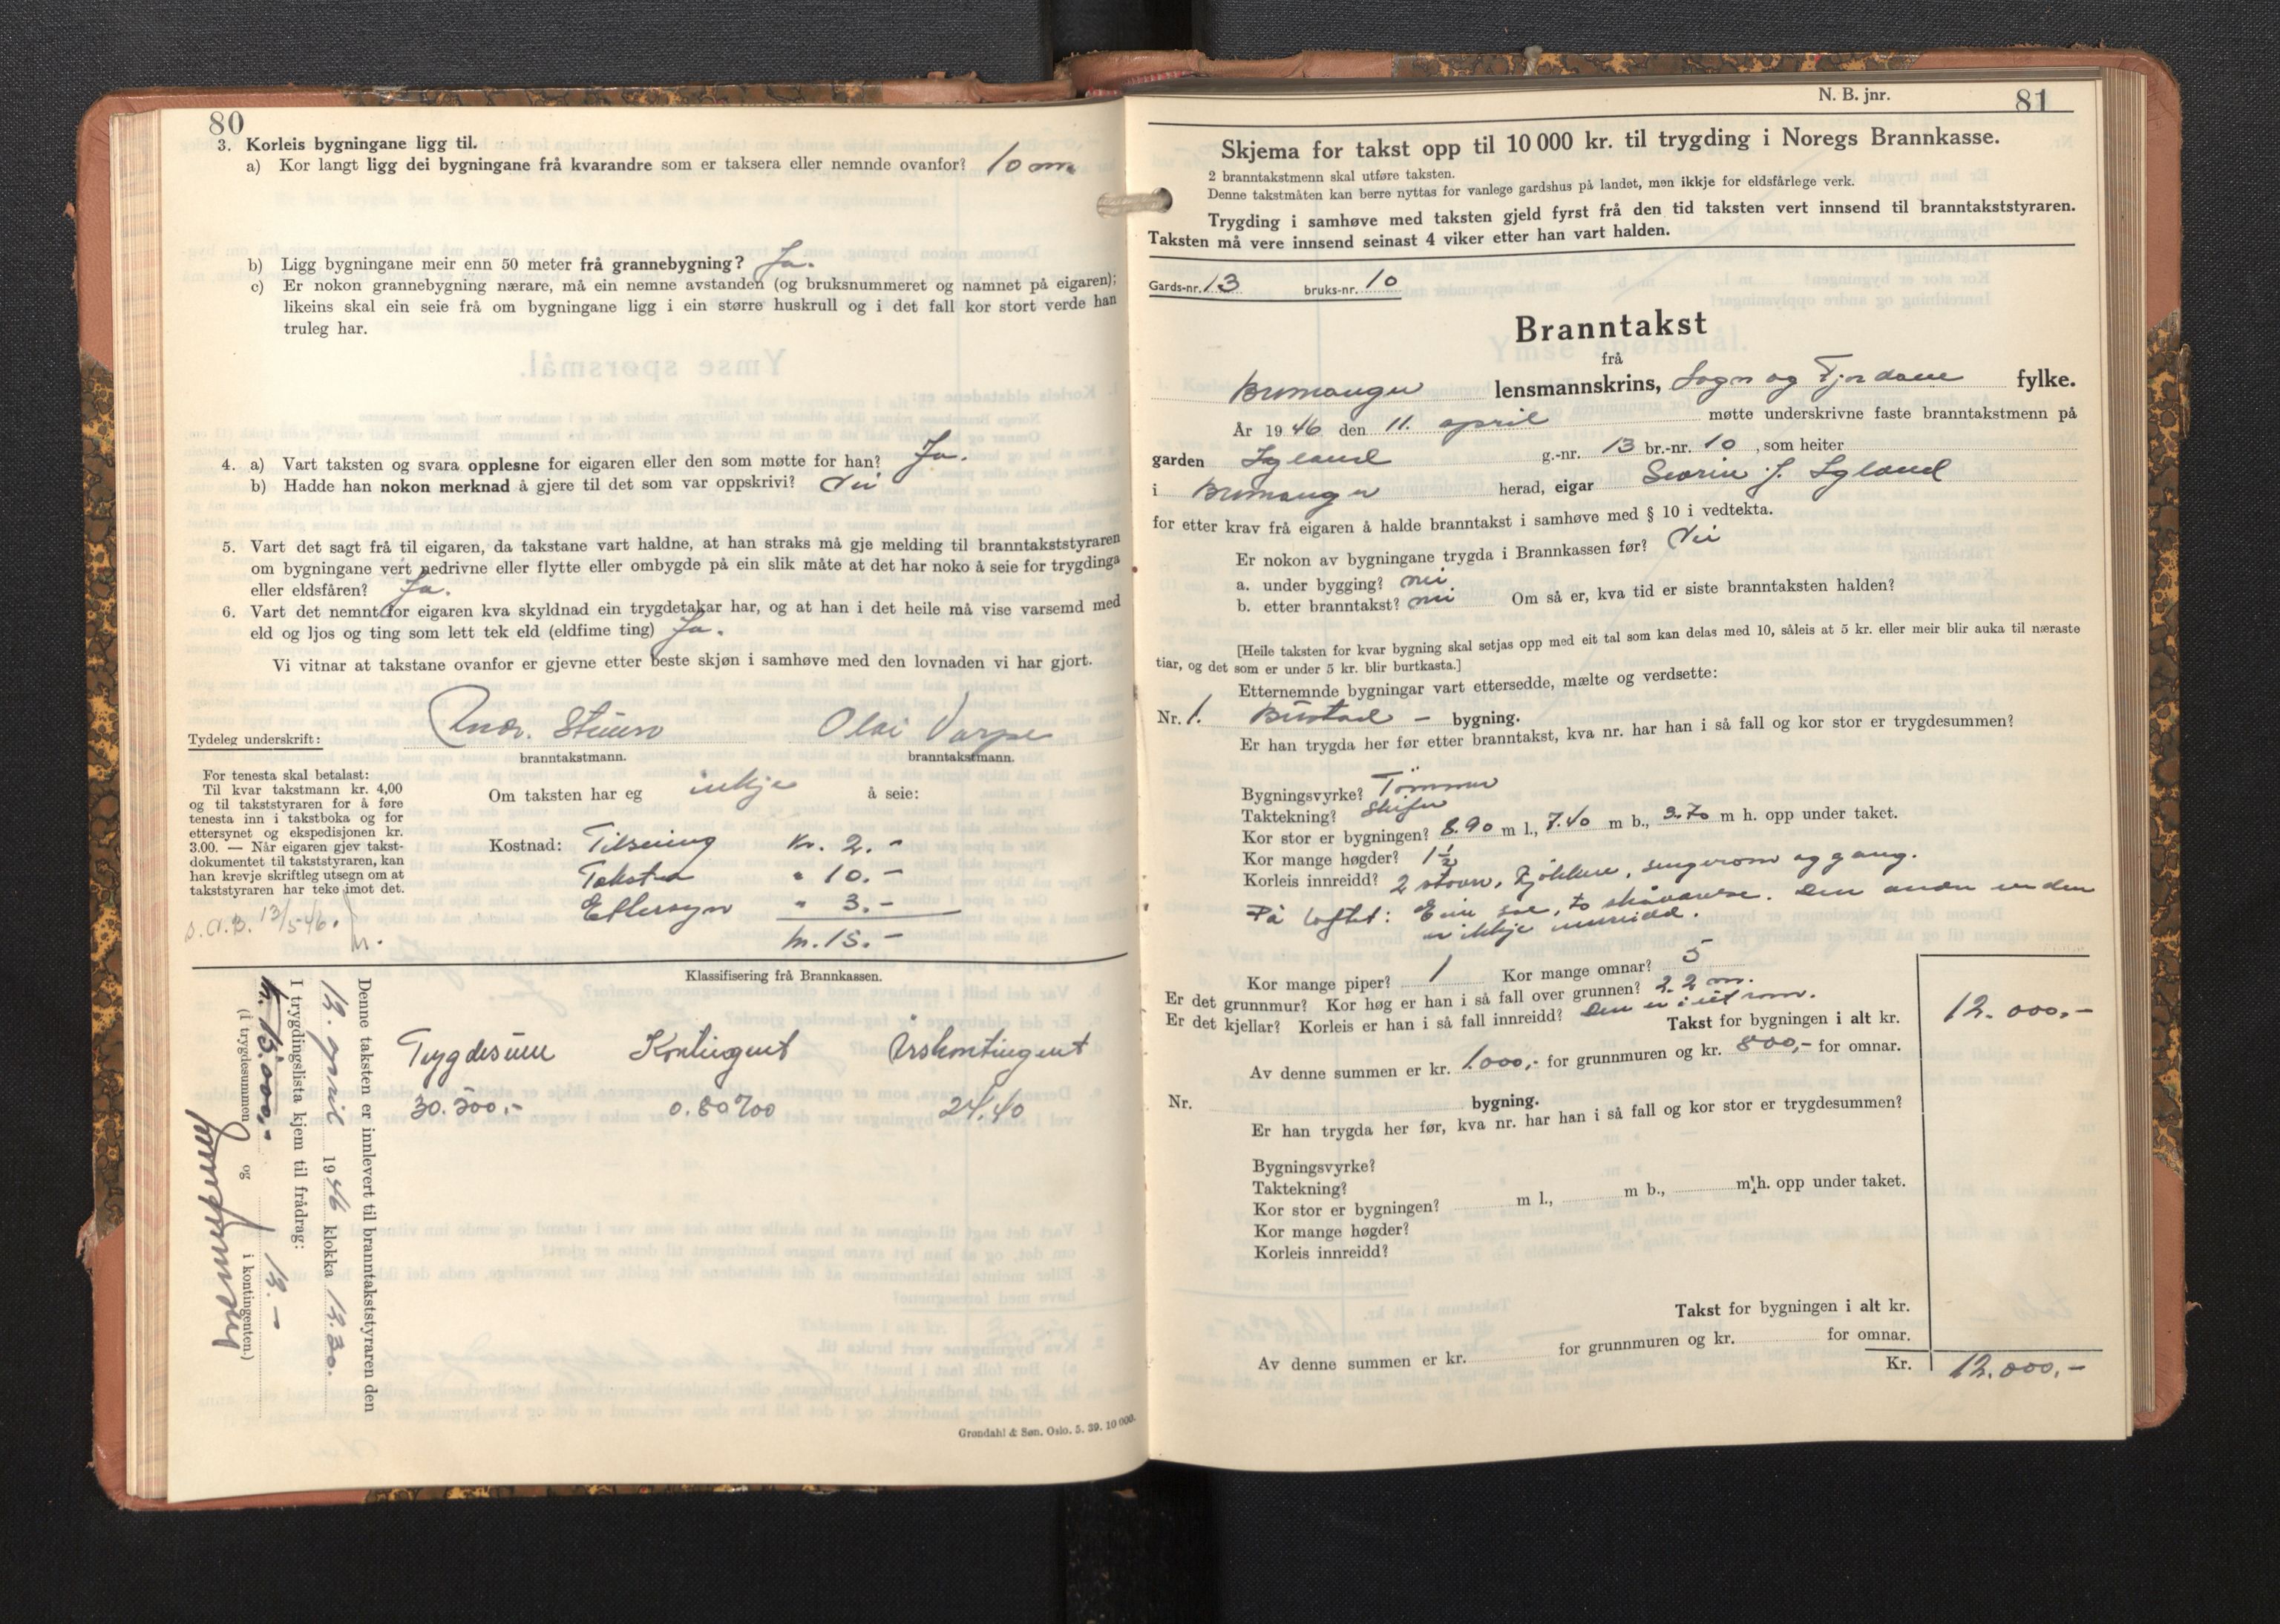 80
3. Korleis bygningane ligg til.
a) Kor langt ligg dei bygningane frå kvarandre som er taksera eller nemnde ovanfor? 10 m.
b) Ligg bygningane meir enn 50 meter frå grannebygning? Ja.
c) Er nokon grannebygning nærare, må ein nemne avstanden (og bruksnummeret og namnet på eigaren);
likeins skal ein seie frå om bygningane ligg i ein større huskrull og i det fall kor stort verde han
truleg har.
4. a) Vart taksten og svara opplesne for eigaren eller den som møtte for han? Ja.
b) Hadde han nokon merknad å gjere til det som var oppskrivi? Nei
5. Vart det sagt frå til eigaren, da takstane vart haldne, at han straks må gje melding til branntakststyraren
om bygningane vert nedrivne eller flytte eller ombygde på ein slik måte at det har noko å seie for trygdinga
eller eldsfåren? Ja.
6. Vart det nemnt for eigaren kva skyldnad ein trygdetakar har, og at han i det heile må vise varsemd med
eld og ljos og ting som lett tek eld (eldfime ting) Ja.
Vi vitnar at takstane ovanfor er gjevne etter beste skjøn i samhøve med den lovnaden vi har gjort.
Tydeleg underskrift: Olai Varpe
branntakstmann. branntakstmann.
For tenesta skal betalast:
Til kvar takstmann kr. 4,00
og til takststyraren for å føre
tenesta inn i takstboka og for
ettersynet og ekspedisjonen kr.
3.00. — Når eigaren gjev takst-
dokumentet til takststyraren, kan
han krevje skriftleg utsegn om at
takststyraren har teke imot det.
Om taksten har eg inkje å seie:
Kostnad: Tilseiing Kr. 2.-
Taksten " 10.-
Ettersyn " 3.-
kr. 15.-
13/5-46.
Klassifisering frå Brannkassen.
Trygdesum Kontingent Årskontingent
30.500,- 0.80 ‰ 24.40
Denne taksten er innlevert til branntakststyraren den
1946 klokka 12.30.
I trygdingslista kjem til frådrag:
kr.
(i trygdesummen og i kontingenten.)
Grøndahl & Søn. Oslo. 5. 39. 10 000.
N. B. jnr. 81
Skjema for takst opp til 10 000 kr. til trygding i Noregs Brannkasse.
2 branntakstmenn skal utføre taksten.
Denne takstmåten kan berre nyttas for vanlege gardshus på landet, men ikkje for eldsfårlege verk.
Trygding i samhøve med taksten gjeld fyrst frå den tid taksten vert innsend til branntakststyraren.
Taksten må vere innsend seinast 4 viker etter han vart halden.
Gards-nr. 13 bruks-nr. 10
Branntakst
frå
Bremanger lensmannskrins, Sogn og Fjordane fylke.
År 1946 den 11. april møtte underskrivne faste branntakstmenn på
garden Igland g.-nr. 13 br.-nr. 10, som heiter
i Bremanger herad, eigar J. Igland
for etter krav frå eigaren å halde branntakst i samhøve med § 10 i vedtekta.
Er nokon av bygningane trygda i Brannkassen før? Nei
a. under bygging? nei
b. etter branntakst? nei Om så er, kva tid er siste branntaksten halden?
[Heile taksten for kvar bygning skal setjas opp med eit tal som kan delas med 10, såleis at 5 kr. eller meir blir auka til næraste
tiar, og det som er under 5 kr. blir burtkasta.]
Etternemnde bygningar vart ettersedde, mælte og verdsette:
Nr. 1. Bustad - bygning.
Er han trygda her før etter branntakst, kva nr. har han i så fall og kor stor er trygdesummen?
Bygningsvyrke? Tømmer
Taktekning? Skifer
Kor stor er bygningen? 8.90 m l., 7.40 m b., 3.70 m h. opp under taket.
Kor mange høgder? 1½
Korleis innreidd? 2 stover, kjøkken, sengerom og gang.
På loftet: Eine sal, to Den andre enden
er ikkje innreidd.
Kor mange piper? 1 Kor mange omnar? 5
Er det grunnmur? Kor høg er han i så fall over grunnen? 2.2 m.
Er det kjellar? Korleis er han i så fall innreidd? Den er i eit rom.
Takst for bygningen i alt kr. 12.000,-
Av denne summen er kr. 1.000,- for grunnmuren og kr. 800,- for omnar.
Nr. bygning.
Er han trygda her før, kva nr. har han i så fall og kor stor er trygdesummen?
Bygningsvyrke?
Taktekning?
Kor stor er bygningen? m l., m b., m h. opp under taket.
Kor mange høgder?
Korleis innreidd?
Takst for bygningen i alt kr.
Av denne summen er kr. for grunnmuren og kr. for omnar.
Kr. 12.000,-